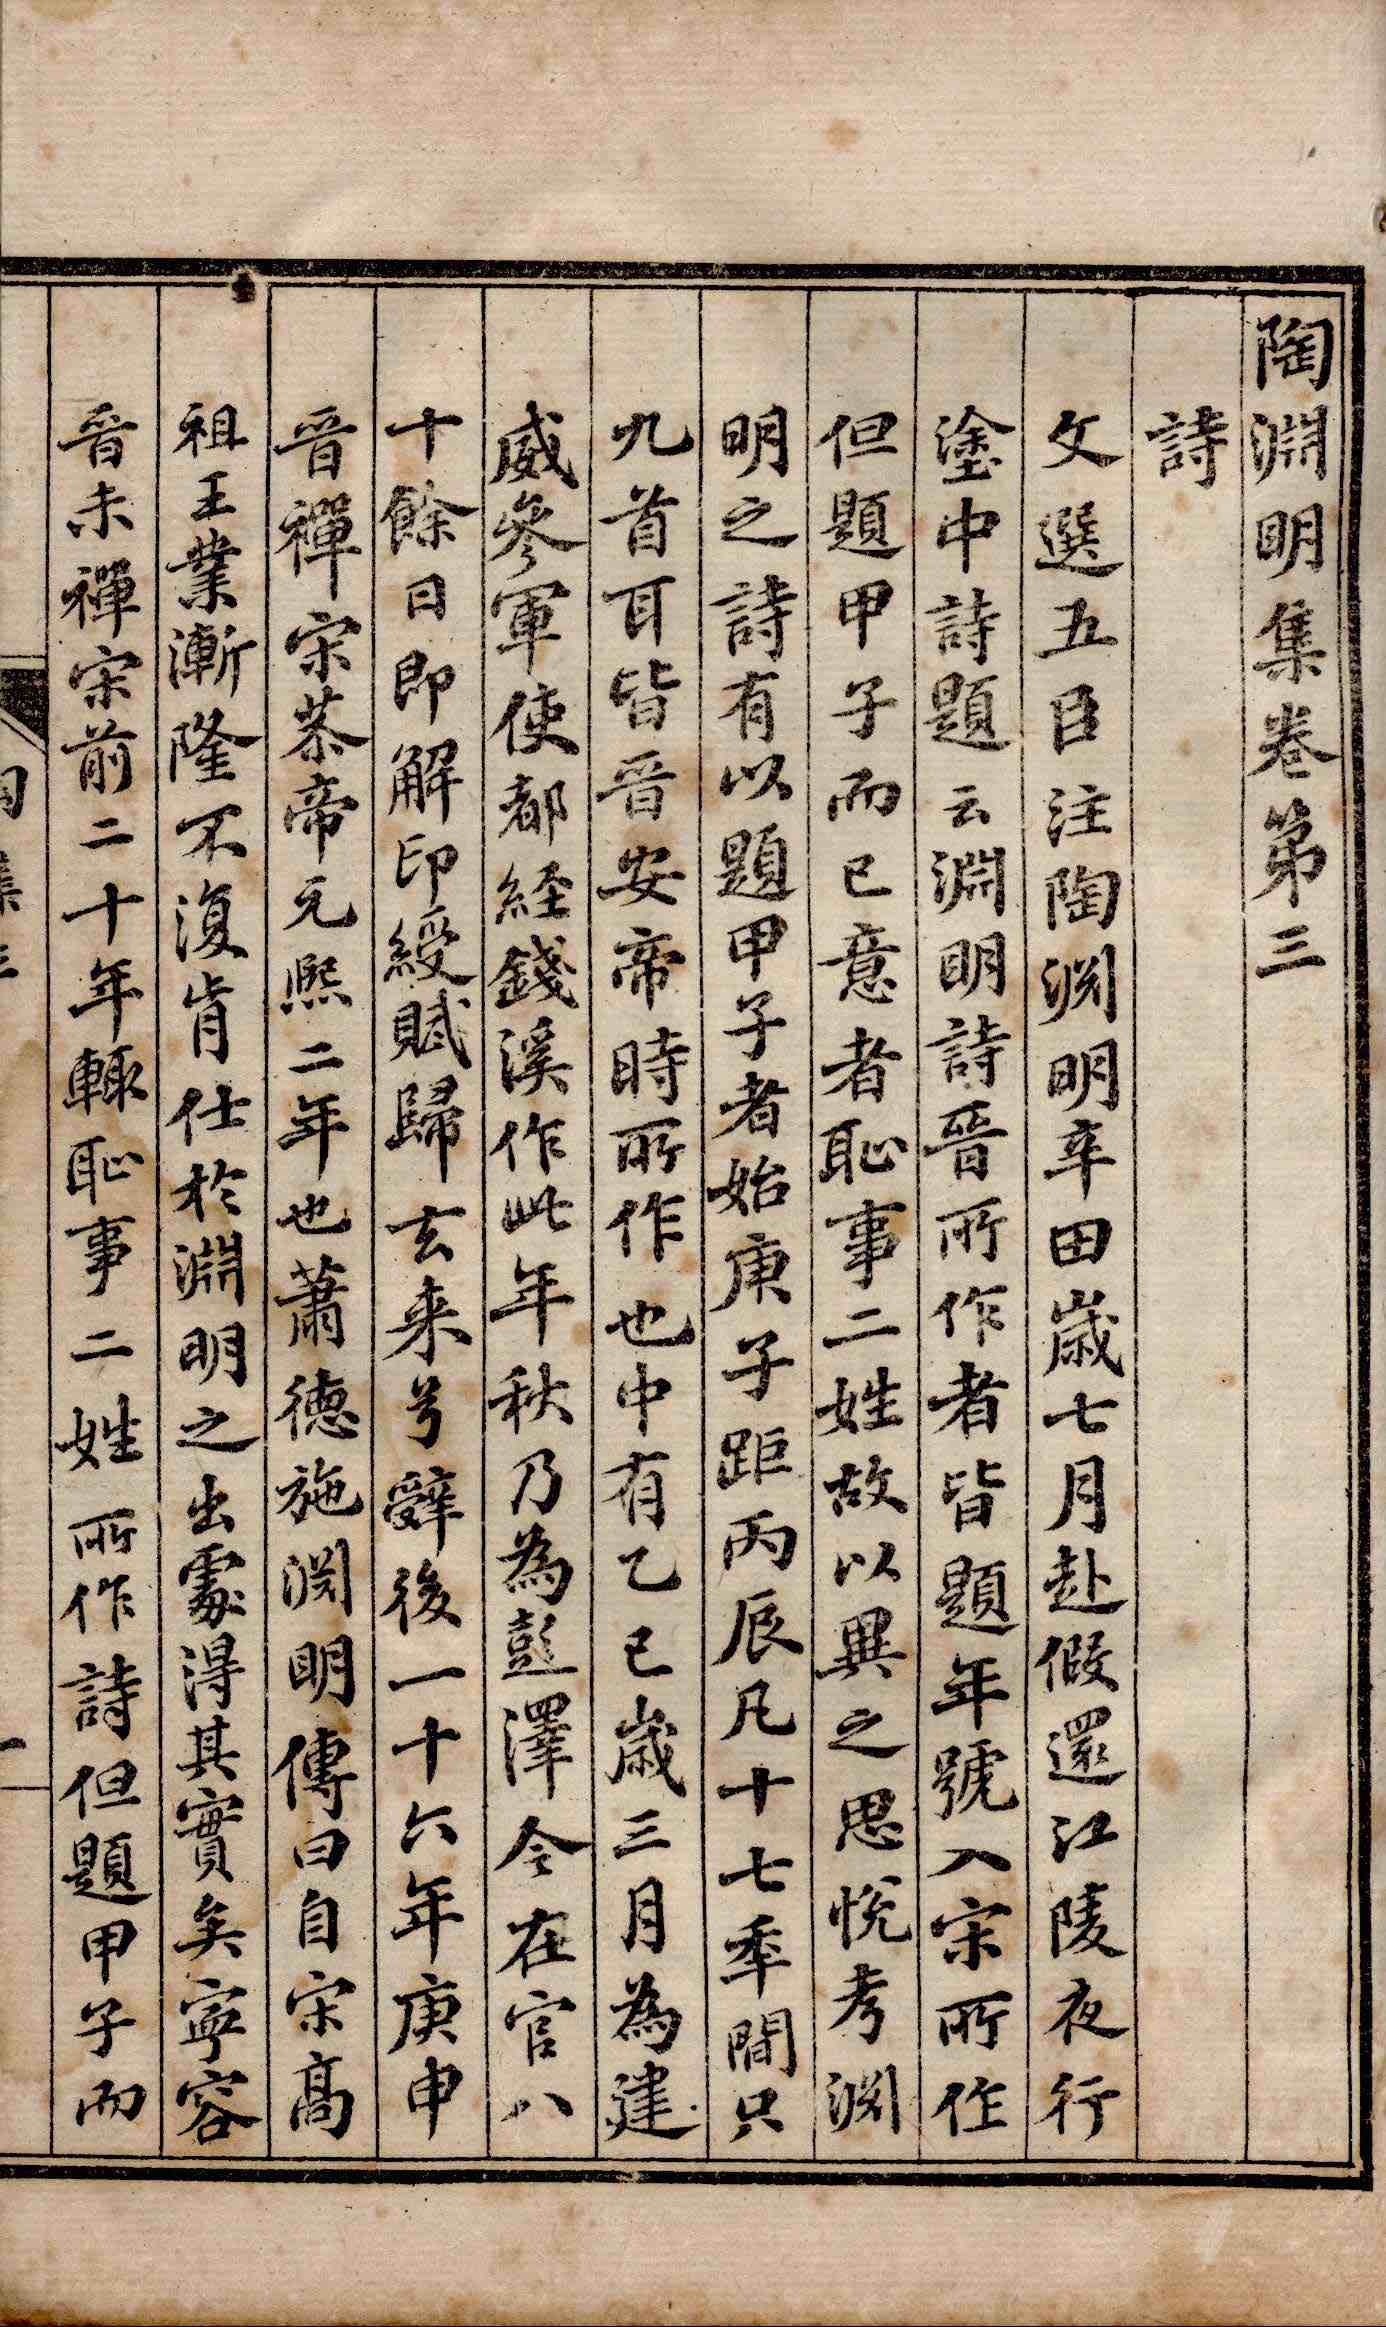 陶淵明集卷第三
詩
文選五臣注陶渊明辛田歳七月赴假還江陵夜行
塗中詩題云淵明詩晉所作者皆題年號入宋所作
但題甲子而已意者恥事二姓故以異之思悅考渊
明之詩有以題甲子者始庚子距丙辰凡十七秊間只
九首耳皆晉安帝時所作也中有乙巳歳三月為建
威參軍使都経錢溪作此年秋乃為彭澤令在官八
十餘日即解印綬賦歸去来兮辭後一十六年庚申
晉禪宋恭帝元熙二年也蕭德施渊明傳曰自宋高
祖王業漸隆不復肯仕於淵明之出處得其實矣寧容
晉未禪宋前二十年輙恥事二姓所作詩但題甲子而